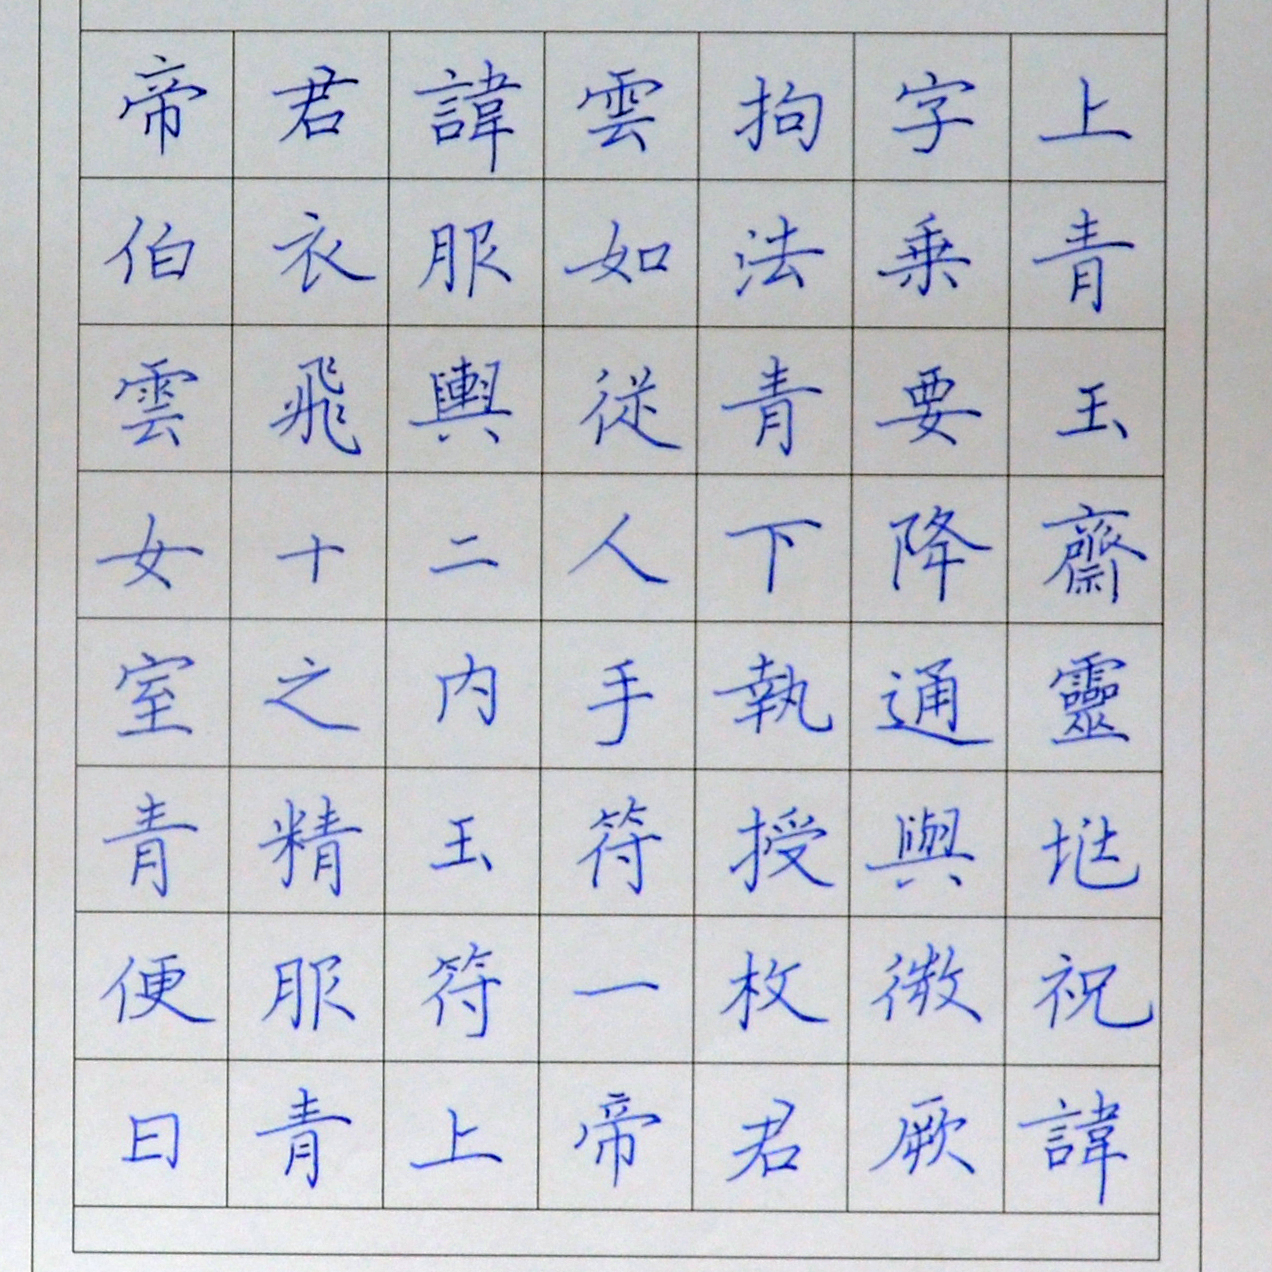 帝君諱雲拘字上
伯衣服如法乗青
雲飛輿従青要玉
女十二人下降齋
室之内手執通靈
青精玉符授與
便服符一枚微祝
曰青上帝君厥諱